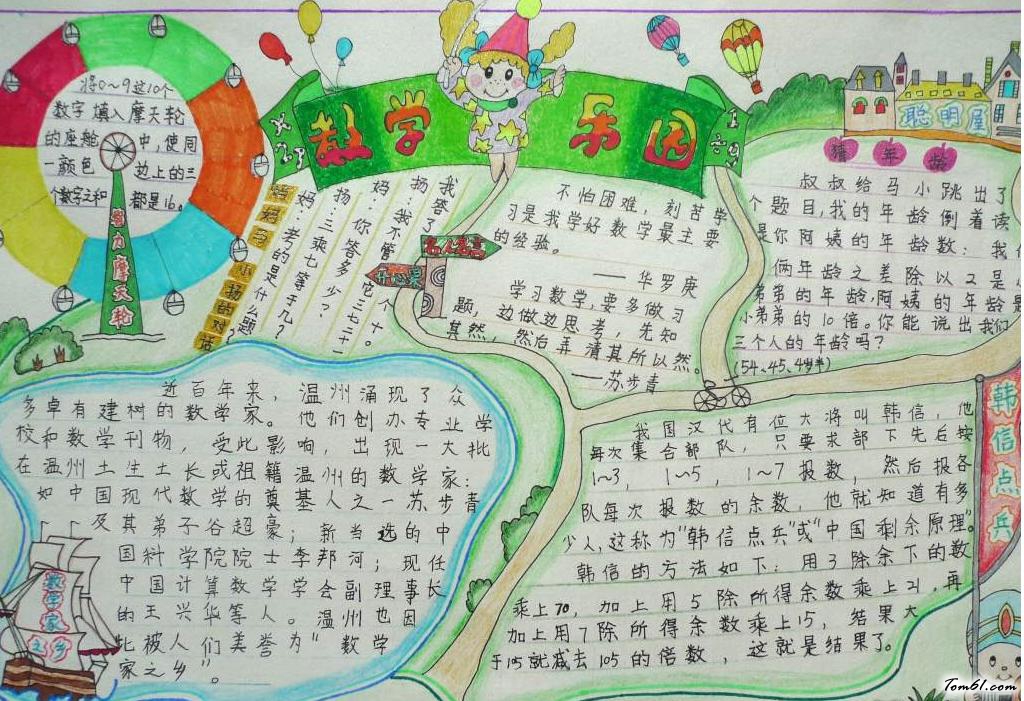 数学 乐园
将0～9这10个
数字填入摩天轮
的座舱中,使同
一颜色边上的三
个数字之和都是16。
智力摩天轮
妈妈与小扬的对话
妈:考的是什么题?
扬:三乘七等于几?
妈:你答多少?
扬:我不管它三七二十一
我答了个十。
名人名言
不怕困难,刻苦学
习是我学好数学最主要
的经验。
——华罗庚
学习数学,要多做习
题,边做边思考,先知
其然,然后弄清其所以然。
——苏步青
聪明屋
猜年龄
叔叔给马小跳出了
个题目,我的年龄倒着读
是你阿姨的年龄数:我们
俩年龄之差除以2是小
弟弟的年龄,阿姨的年龄是
小弟弟的10倍。你能说出我们
三个人的年龄吗?
(54、45、4岁半)
近百年来,温州涌现了众
多卓有建树的数学家。他们创办专业学
校和数学刊物,受此影响,出现一大批
在温州土生土长或祖籍温州的数学家:
如中国现代数学的奠基人之一苏步青
及其弟子谷超豪;新当选的中
国科学院院士李邦河;现任
中国计算数学学会副理事长
的王兴华等人。温州也因
此被人们美誉为“数学
家之乡”。
数学家之乡
韩信点兵
我国汉代有位大将叫韩信,他
每次集合部队,只要求部下先后按
1~3,1~5,1~7报数,然后报各
队每次报数的余数,他就知道有多
少人,这称为“韩信点兵”或“中国剩余原理”。
韩信的方法如下:用3除余下的数
乘上70,加上用5除所得余数乘上21,再
加上用7除所得余数乘上15,结果大
于105就减去105的倍数,这就是结果了。
Tom61.com